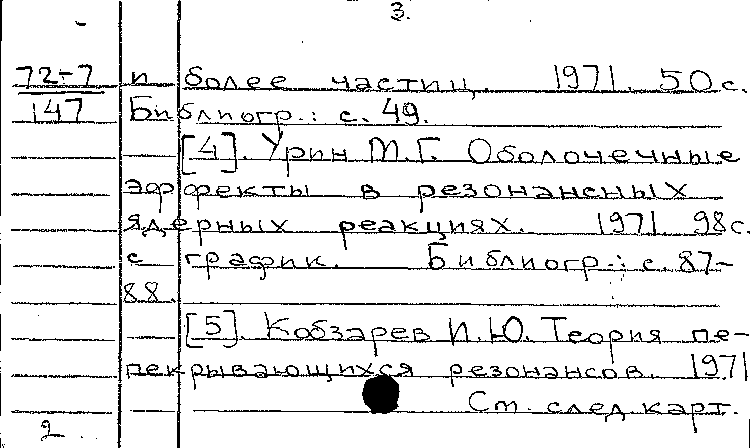 3.
72-7 и более частиц. 1971. 50с.
147 Библиогр.: с. 49.
[4]. Урин М.Г. Оболочечные
эффекты в резонансных
ядерных реакциях. 1971 98с.
с график. Библиогр.: с. 87-
88.
[5]. Кобзарев И.Ю. Теория пе-
рекрывающихся резонансов. 1971
См. след. карт.
2